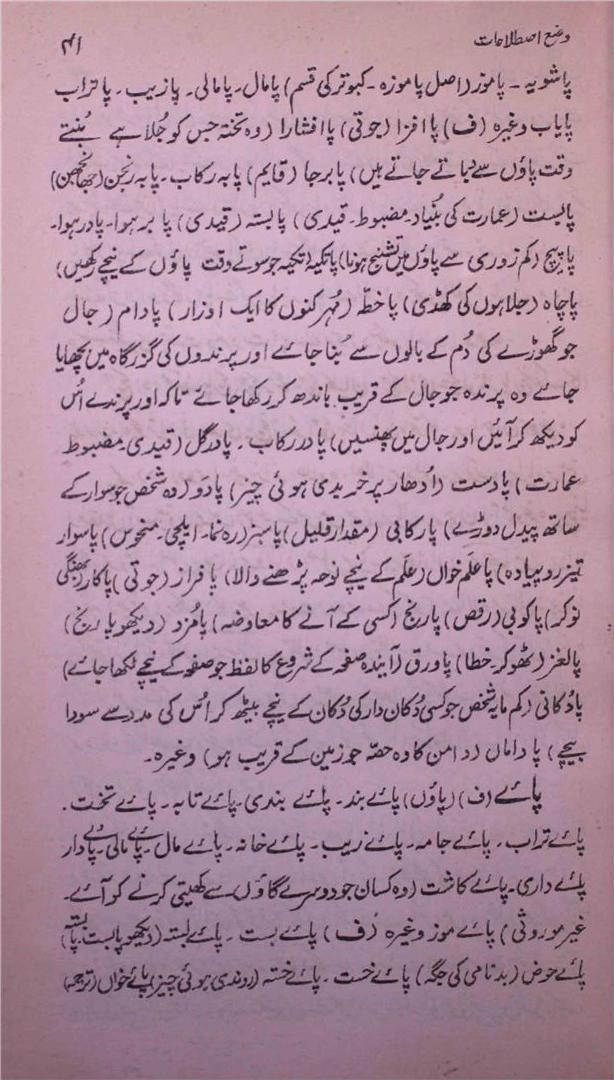 وضع اصطلاحات
۴۱
پاشویہ - پاموز (اصل پاموزہ - کبوتر کی قسم) پامال - پامالی - پازیب - پاتراب
پایاب وغیرہ (ف) پا افزا (جوتی) پا افشارا (وہ تختہ جس کو جُلاہے بُنتے
وقت پاؤں سے دباتے جاتے ہیں) پابرجا (قایم) پا بہ رکاب - پابہ رنجن (جھانجھن)
پابست (عمارت کی بُنیاد - مضبوط - قیدی) پابستہ (قیدی) پا بر ہوا - پادر ہوا -
پاپیچ (کم زوری سے پاؤں میں تشنج ہونا) پاتکیہ (تکیہ جو سوتے وقت پاؤں کے نیچے رکھیں)
پاچاہ (جلاہوں کی کھڈی) پاخطّہ (مُہر کنوں کا ایک اوزار) پادام (جال
جو گھوڑے کی دُم کے بالوں سے بُنا جائے اور پرندوں کی گزرگاہ میں بچھایا
جائے وہ پرندہ جو جال کے قریب باندھ کر رکھا جائے تاکہ اور پرندے اُس
کو دیکھ کر آئیں اور جال میں پھنسیں) پادر رکاب - پادرگل (قیدی - مضبوط
عمارت) پادست (اُدھار پر خریدی ہوئی چیز) پادَو (وہ شخص جو سوار کے
ساتھ پیدل دوڑے) پارکابی (مقدار قلیل) پاسبز (رہ نما - ایلچی - منحوس) پاسوار
تیز رو پیادہ) پاعلَم خواں (علَم کے نیچے نوحہ پڑھنے والا) پافراز (جوتی) پاکار (بھنگی
نوکر) پاکوبی (رقص) پارنج (کسی کے آنے کا معاوضہ) پامُزد (دیکھو پا رنج)
پالغز (ٹھوکر - خطا) پاورق (آیندہ صفحہ کے شروع کا لفظ جو صفحہ کے نیچے لکھا جائے)
پادُکانی (کم مایہ شخص جو کسی دُکان دار کی دُکان کے نیچے بیٹھ کر اُس کی مدد سے سودا
بیچے) پا داماں (دامن کا وہ حصّہ جو زمین کے قریب ہو) وغیرہ -
پائے (ف) (پاؤں) پائے بند - پائے بندی - پائے تابہ - پائے تخت -
پائے تراب - پائے جامہ - پائے زیب - پائے خانہ - پائے مال - پائے مالی - پائے دار
پائے داری - پائے کاشت (وہ کسان جو دوسرے گاؤں سے کھیتی کرنے کو آئے -
غیر موروثی) پائے موز وغیرہ (ف) پائے بست - پائے بستہ (دیکھو پابست پابستہ)
پائے حوض (بدنامی کی جگہ) پائے خست - پائے خستہ (روندی ہوئی چیز) پائے خواں (ترجمہ)